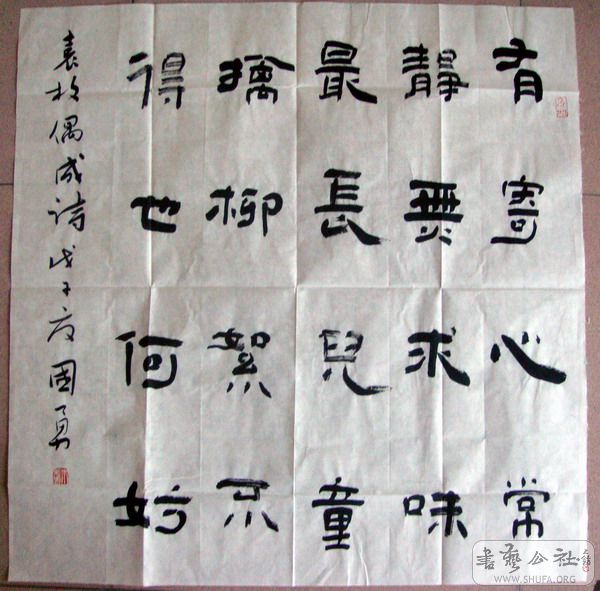 有寄心常
靜無求味
最長兒童
擒柳絮不
得也何妨
袁枚偶成詩戊子夏國勇
書藝公社
WWW.SHUFA.ORG